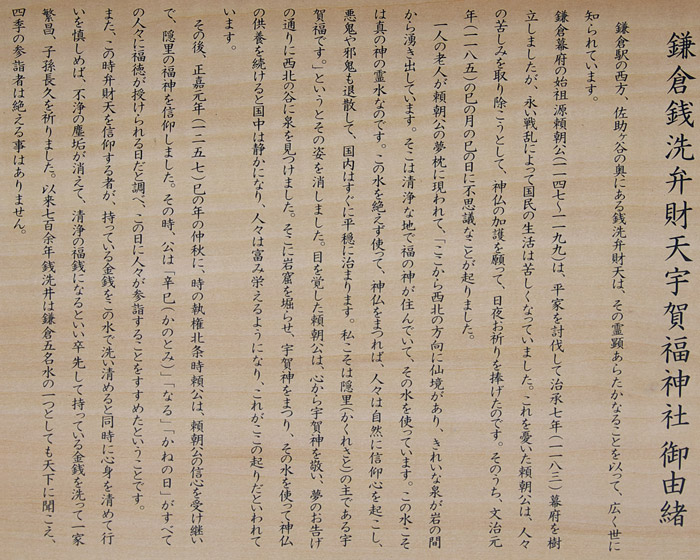 鎌倉銭洗弁財天宇賀福神社 御由緒
鎌倉駅の西方、佐助ヶ谷の奥にある銭洗弁財天は、その霊顕あらたかなることを以って、広く世に
知られています。
鎌倉幕府の始祖源頼朝公(一一四七〜一一九九)は、平家を討伐して治承七年(一一八三)幕府を樹
立しましたが、永い戦乱によって国民の生活は苦しくなっていました。これを憂いた頼朝公は、人々
の苦しみを取り除こうとして、神仏の加護を願って、日夜お祈りを捧げたのです。そのうち、文治元
年(一一八五)の巳の月の巳の日に不思議なことが起りました。
一人の老人が頼朝公の夢枕に現われて、「ここから西北の方向に仙境があり、きれいな泉が岩の間
から湧き出しています。そこは清浄な地で福の神が住んでいて、その水を使っています。この水こそ
は真の神の霊水なのです。この水を絶えず使って、神仏をまつれば、人々は自然に信仰心を起こし、
悪鬼や邪鬼も退散して、国内はすぐに平穏に治まります。私こそは隠里(かくれざと)の主である宇
賀福です。」というとその姿を消しました。目を覚した頼朝公は、心から宇賀神を敬い、夢のお告げ
の通りに西北の谷に泉を見つけました。そこに岩窟を堀らせ、宇賀神をまつり、その水を使って神仏
の供養を続けると国中は静かになり、人々は富み栄えるようになり、これが、ここの起りだといわれて
います。
その後、正嘉元年(一二五七)巳の年の仲秋に、時の執権北条時頼公は、頼朝公の信心を受け継い
で、隠里の福神を信仰しました。その時、公は「辛巳(かのとみ)」「なる」「かねの日」がすべて
の人々に福徳が授けられる日だと調べ、この日に人々が参詣することをすすめたということです。
また、この時弁財天を信仰する者が、持っている金銭をこの水で洗い清めると同時に心身を清めて行
いを慎しめば、不浄の塵垢が消えて、清浄の福銭になるといい卒先して持っている金銭を洗って一家
繁昌、子孫長久を祈りました。以来七百余年銭洗井は鎌倉五名水の一つとしても天下に聞こえ、
四季の参詣者は絶える事はありません。